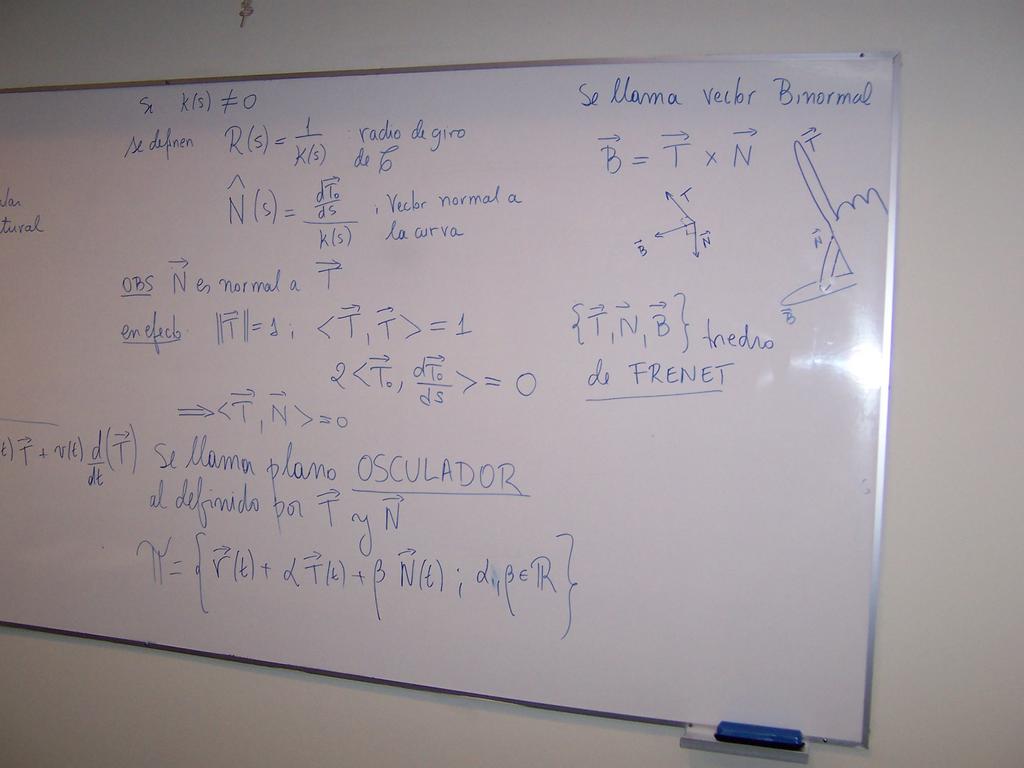 tural
(t) T⃗ + v(t) d/dt (T⃗)
Si k(s) ≠ 0
se definen R(s) = 1/k(s) : radio de giro
de
N̂(s) = (dT⃗₀/ds)/k(s) ; vector normal a
la curva
OBS N⃗ es normal a T⃗
en efecto ||T⃗|| = 1 ; <T⃗, T⃗> = 1
2 <T⃗₀, dT⃗₀/ds> = 0
⟹ <T⃗, N⃗> = 0
Se llama plano OSCULADOR
al definido por T⃗ y N⃗
π = { r⃗(t) + α T⃗(t) + β N⃗(t) ; α, β ∈ ℝ }
Se llama vector Binormal
B⃗ = T⃗ × N⃗
T⃗
B⃗
N⃗
T⃗
N⃗
B⃗
{T⃗, N⃗, B⃗} triedro
de FRENET